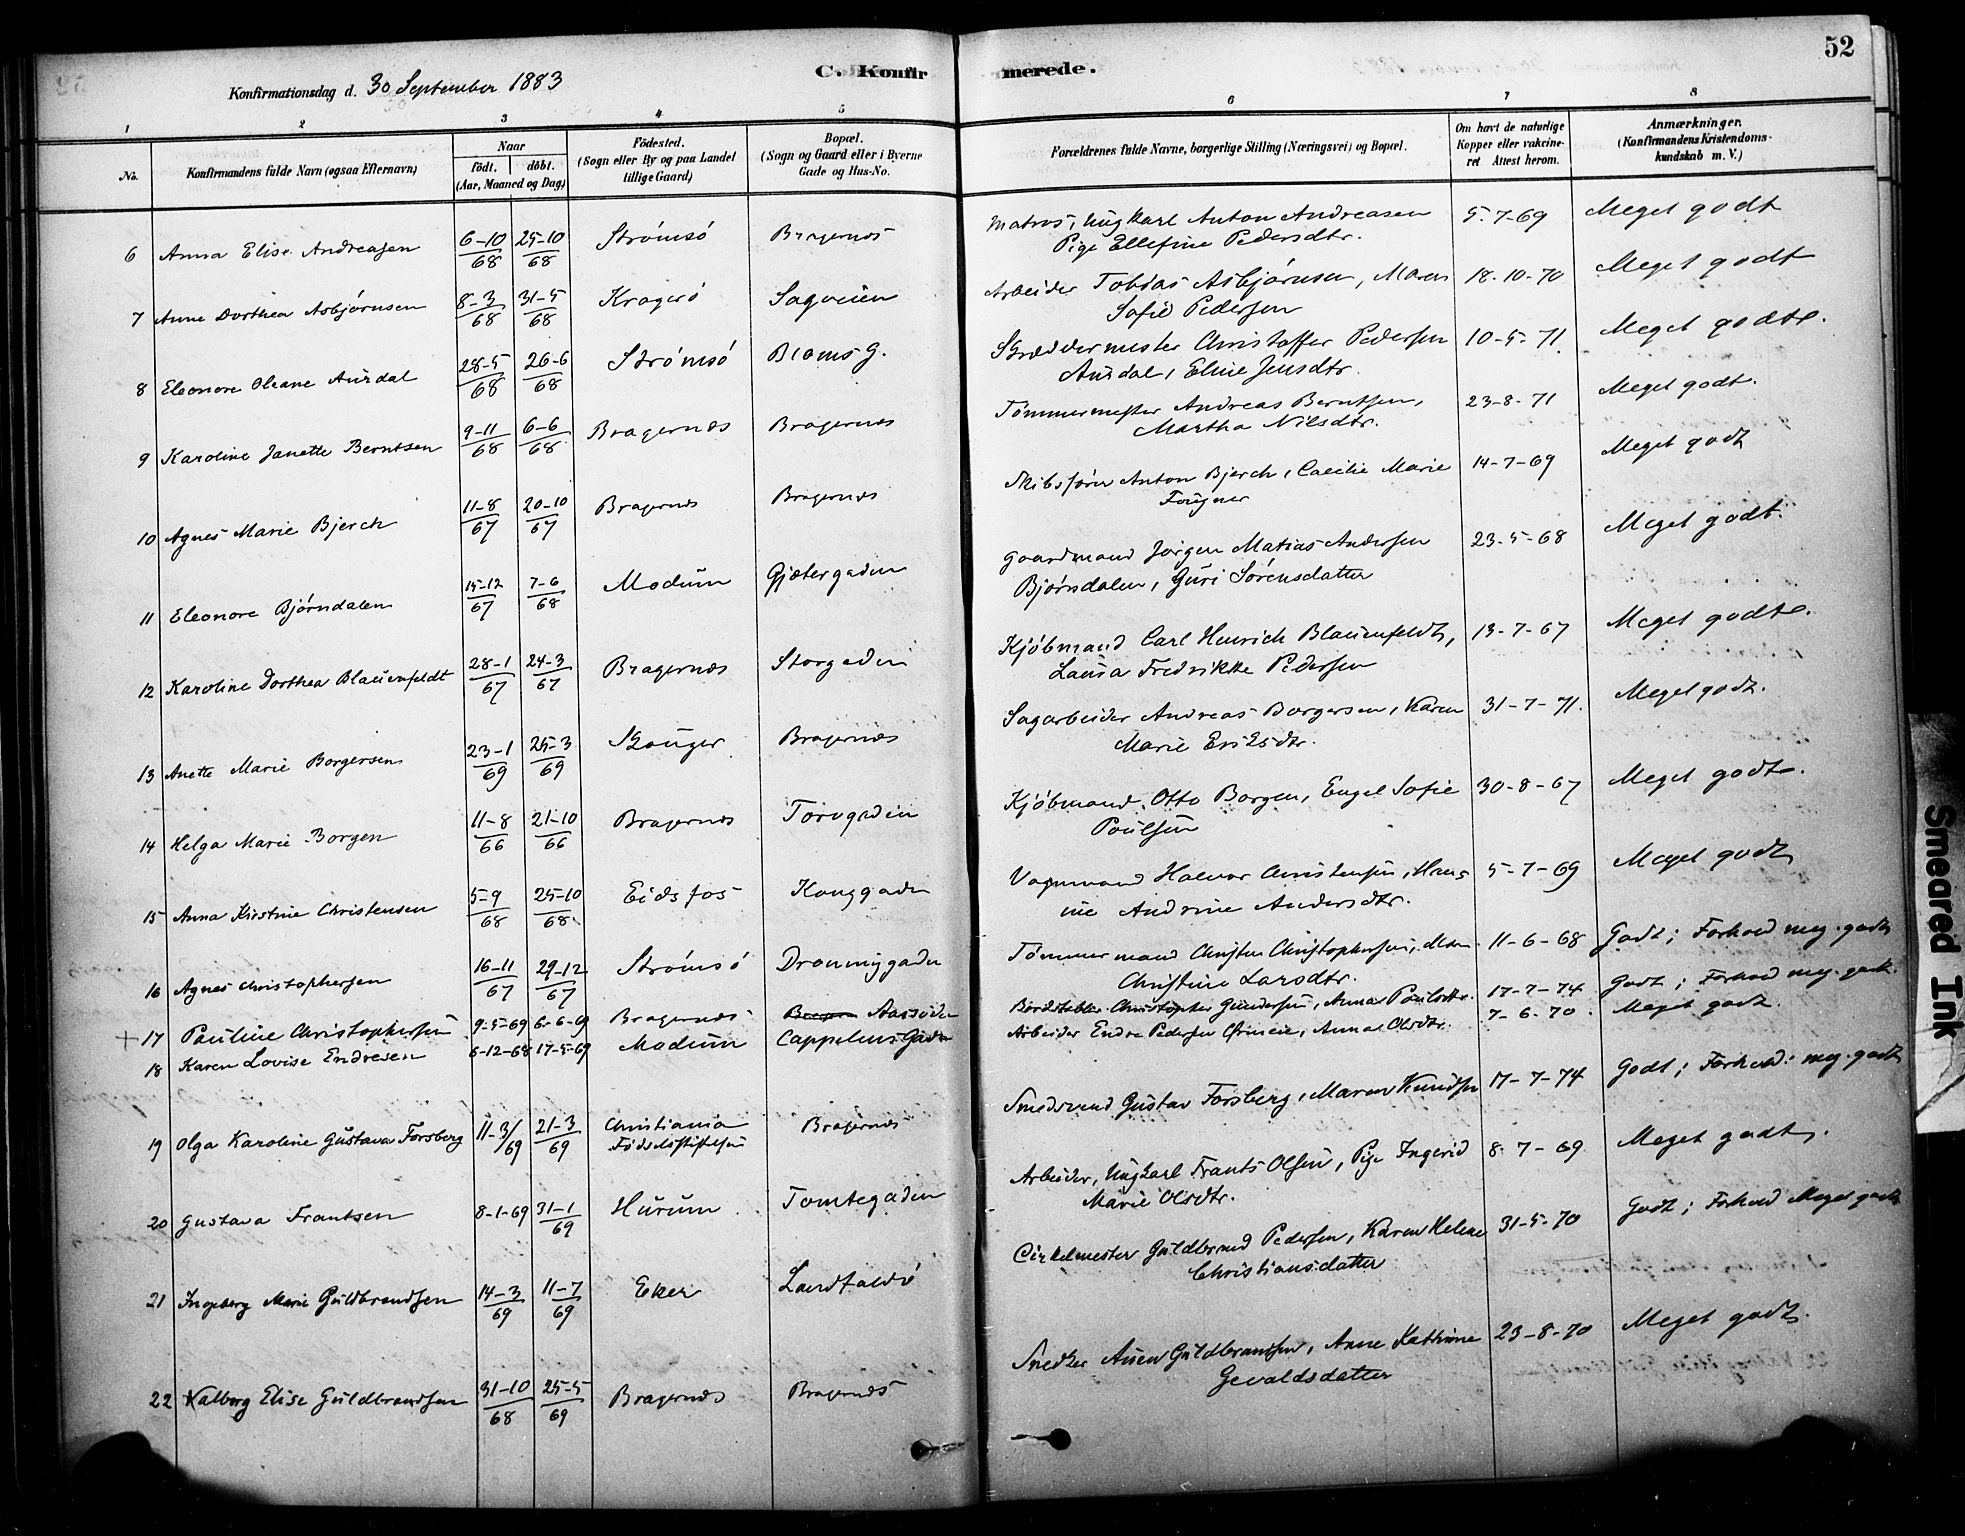 52
C. Konfirmerede.
Konfirmationsdag d. 30 September 1883
1 2 3 4 5 6 7 8
No. Konfirmandens fulde Navn (ogsaa Efternavn) Naar födt. döbt. (Aar, Maaned og Dag) Födested. (Sogn eller By og paa Landet tillige Gaard) Bopæl. (Sogn og Gaard eller i Byerne Gade og Hus-No. Forældrenes fulde Navne, borgerlige Stilling (Næringsvei) og Bopæl. Om havt de naturlige Kopper eller vakcineret Attest herom. Anmærkninger. (Konfirmandens Kristendomskundskab m. V.)
6 Anna Elise Andreasen 6-10/68 25-10/68 Strömsö Bragernes Matros, Ungkarl Anton Andreasen 5-7-69 Meget godt
Pige Ellefine Pedersdtr.
7 Anne Dorthea Asbjørnsen 8-3/68 31-5/68 Kragerö Sagveien Arbeider Tobias Asbjørnsen, Maren 18-10-70 Meget godt
Sofie Pedersen
8 Eleonore Oleane Aurdal 28-5/68 26-6/68 Strömsö Bloms G. Skræddermester Christoffer Pedersen 10-5-71 Meget godt.
Aurdal, Eline Jensdtr.
9 Karoline Janette Berntsen 9-11/68 6-6/68 Bragernes Bragernes Tömmermester Andreas Berntsen, 23-8-71 Meget godt.
Martha Nilsdtr.
10 Agnes Marie Bjerch 11-8/67 20-10/67 Bragernes Bragernes Skibsfører Anton Bjerch, Caecilie Marie 14-7-69 Meget godt
Fougner
11 Eleonore Björndalen 15-12/67 7-6/68 Modum Gjetergaden Gaardmand Jørgen Matias Andersen 23-5-68 Meget godt.
Bjørndalen, Guri Sörensdatter
12 Karoline Dorthea Blauenfeldt 28-1/67 24-3/67 Bragernes Storgaden Kjøbmand Carl Henrich Blauenfeldt, 13-7-67 Meget godt.
Laura Fredrikke Pedersen
13 Anette Marie Borgersen 23-1/69 25-3/69 Skouger Bragernes Sagarbeider Andreas Borgersen, Karen 31-7-71. Meget godt.
Marie Eriksdtr.
14 Helga Marie Borgen 11-8/66 21-10/66 Bragernes Torvgaden Kjøbmand Otto Borgen, Engel Sofie 30-8-67 Meget godt.
Poulsen
15 Anna Kirstine Christensen 5-9/68 25-10/68 Eidsfos Konggaden Vognmand Halvor Christensen, Hansine 5-7-69 Meget godt
Andrine Andersdtr.
16 Agnes Christophersen 16-11/67 29-12/67 Strömsö Dronninggaden Tömmermand Christen Christophersen, 11-6-68 Godt; Forhold meg. godt
Christine Larsdtr.
+ 17 Pauline Christophersen 9-5-69 6-6-69 Bragernes Aassiden Bordstabler Christopher Gundersen, Anna Paulsdtr. 17-7-74 Godt; Forhold meg. godt.
18 Karen Lovise Endresen 6-12-68 17-5-69 Modum Cappelens Gaden Arbeider Endre Pedersen, Anna Olsdtr. 7-6-70. Meget godt.
19 Olga Karoline Gustava Forsberg 11-3/69 21-3/69 Christiania Bragernes Smedsvend Gustav Forsberg, Maren Knudsen 17-7-74 Godt; Forhold: meg. godt
Födselsstiftelsen
20 Gustava Frantsen 8-1-69 31-1/69 Hurum Tomtegaden Arbeider, Ungkarl Frants Olsen, Pige Ingerid 8-7-69 Meget godt.
Marie Olsdtr.
21 Ingeborg Marie Guldbrandsen 14-3/69 11-7/69 Eker Landfaldö Cirkelmester Guldbrand Pedersen, Karen Helene 31-5-70 Godt; Forhold Meget godt
Christiansdatter
22 Valborg Elise Guldbrandsen 31-10/68 25-5/69 Bragernes Bragernes Snedker Guldbrandsen, Anne Kathrine 23-8-70 Meget godt.
Gevaldsdatter
Smeared Ink